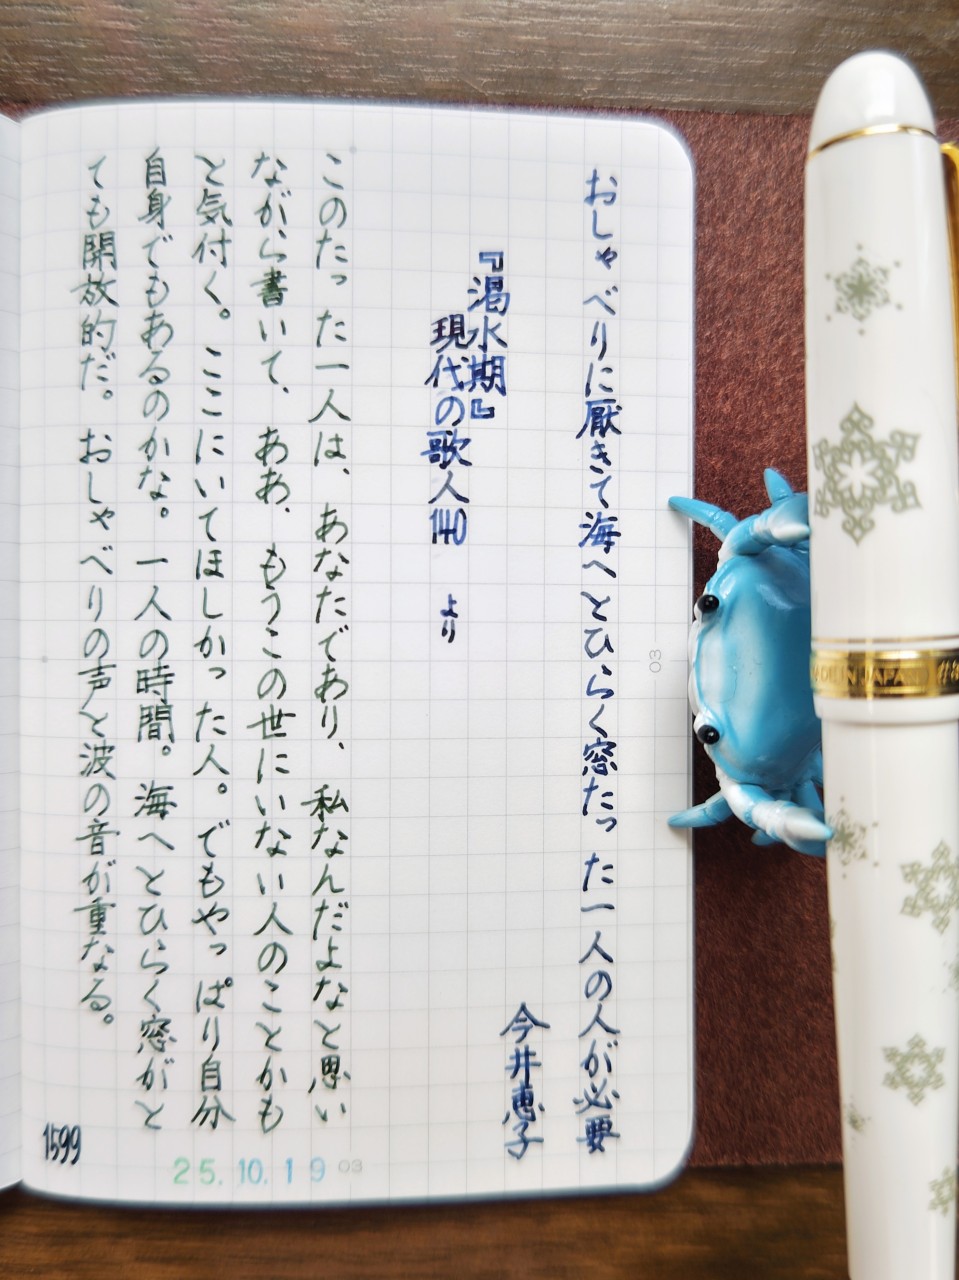 おしゃべりに厭きて海へとひらく窓たった一人の人が必要
今井恵子
『渇水期』
現代の歌人140 より
このたった一人は、あなたであり、私なんだよなと思い
ながら書いて、ああ、もうこの世にいない人のことかも
と気付く。ここにいてほしかった人。でもやっぱり自分
自身でもあるのかな。一人の時間。海へとひらく窓がと
ても開放的だ。おしゃべりの声と波の音が重なる。
1599
25.10.19
03
03
MADE IN JAPAN